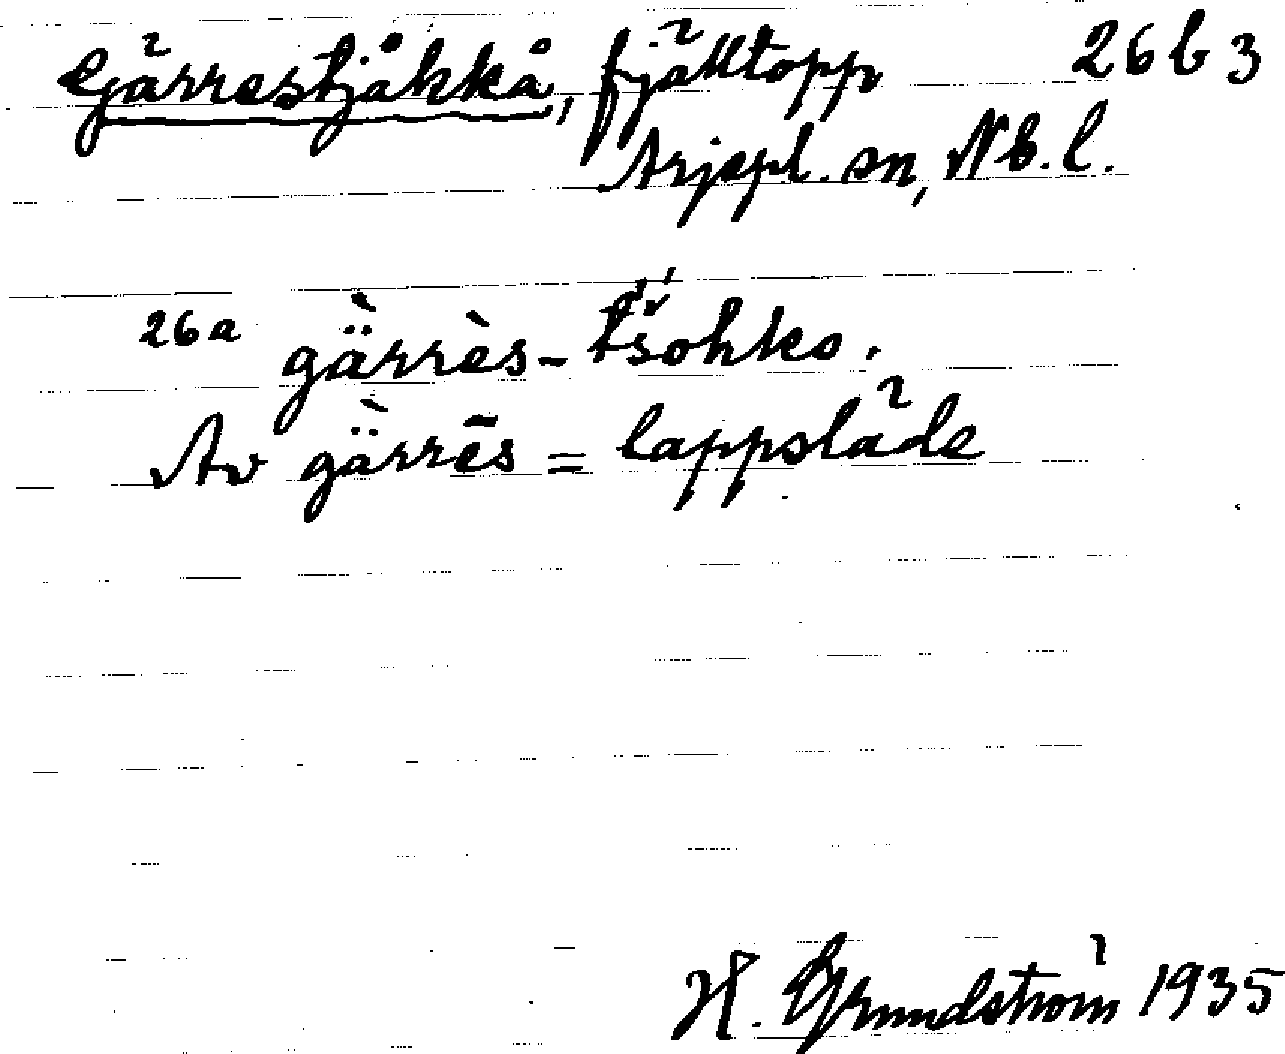 Gärrestjåkkå, fjälltopp 26 b 3
Arjepl. sn, Nb. l.
26a gä̀rrès-tšohko.
Av gä̀rrēs = lappsläde
H. Grundström 1935